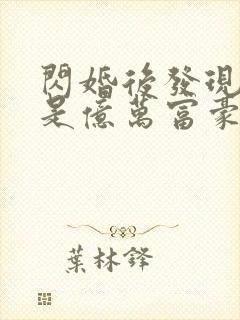 閃婚後發現
是億萬富豪
葉林鋒